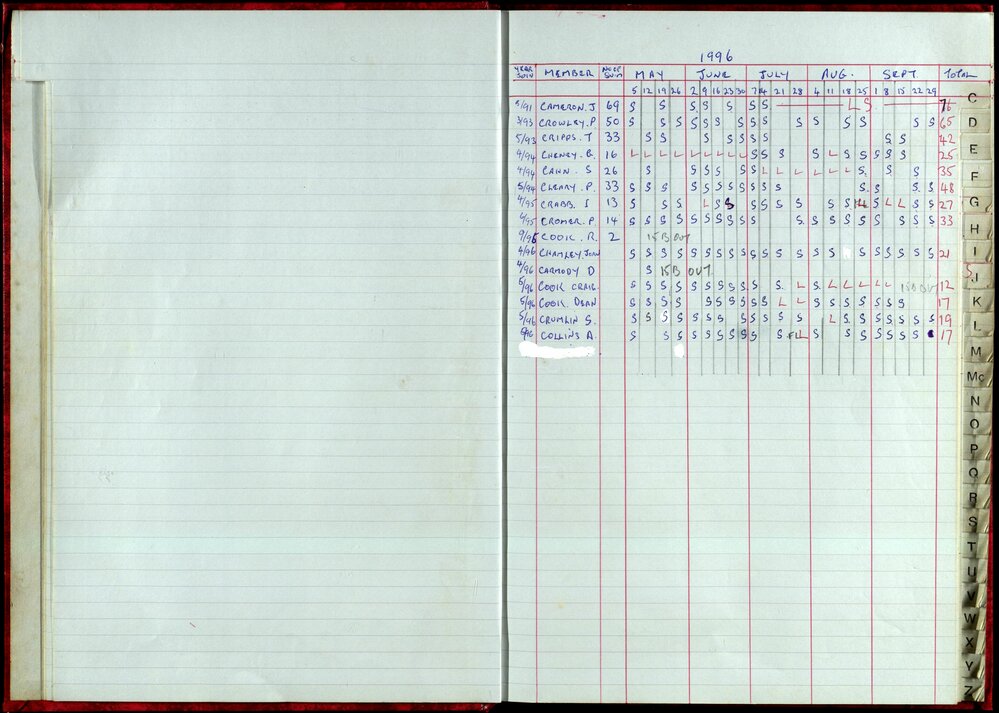 1996
YEAR JOIN MEMBER NO OF SWIM MAY JUNE JULY AUG. SEPT. TOTAL
5 12 19 26 2 9 16 23 30 7 14 21 28 4 11 18 25 1 8 15 22 29
5/91 CAMERON. J 69 S S S S S S S L S 76
3/93 CROWLEY. P 50 S S S S S S S S S S S S S S S 65
5/93 CRIPPS. T 33 S S S S S S S S S 42
4/94 CHENEY. G. 16 L L L L L L L L L S S S S L S S S S S 25
4/94 CAHN. S 26 S S S S S S L L L L L L L S S S 35
5/94 CLEARY. P. 33 S S S S S S S S S S S S S S S 48
4/95 CRABB. S 13 S S S L S S S S S S S S L S L L S S 27
4/95 CROMER. P. 14 S S S S S S S S S S S S S S S S S S S 33
9/95 COOK. R. 2 15 B OUT
4/96 CHAMLEY. JOHN S S S S S S S S S S S S S S S S S S S S S 21
4/96 CARMODY D S 15B OUT
5/96 COOK CRAIG. S S S S S S S S S S S L S L L L L 15B OUT 12
5/96 COOK. DEAN S S S S S S S S S S L L S S S S S S S 17
5/96 CRUMLIN S. S S S S S S S S S S S S L S S S S S S S 19
COLLINS A. S S S S S S S S S S L S S S S S S S 17
C
D
E
F
G
H
I
J
K
L
M
Mc
N
O
P
Q
R
S
T
U
V
W
X
Y
Z